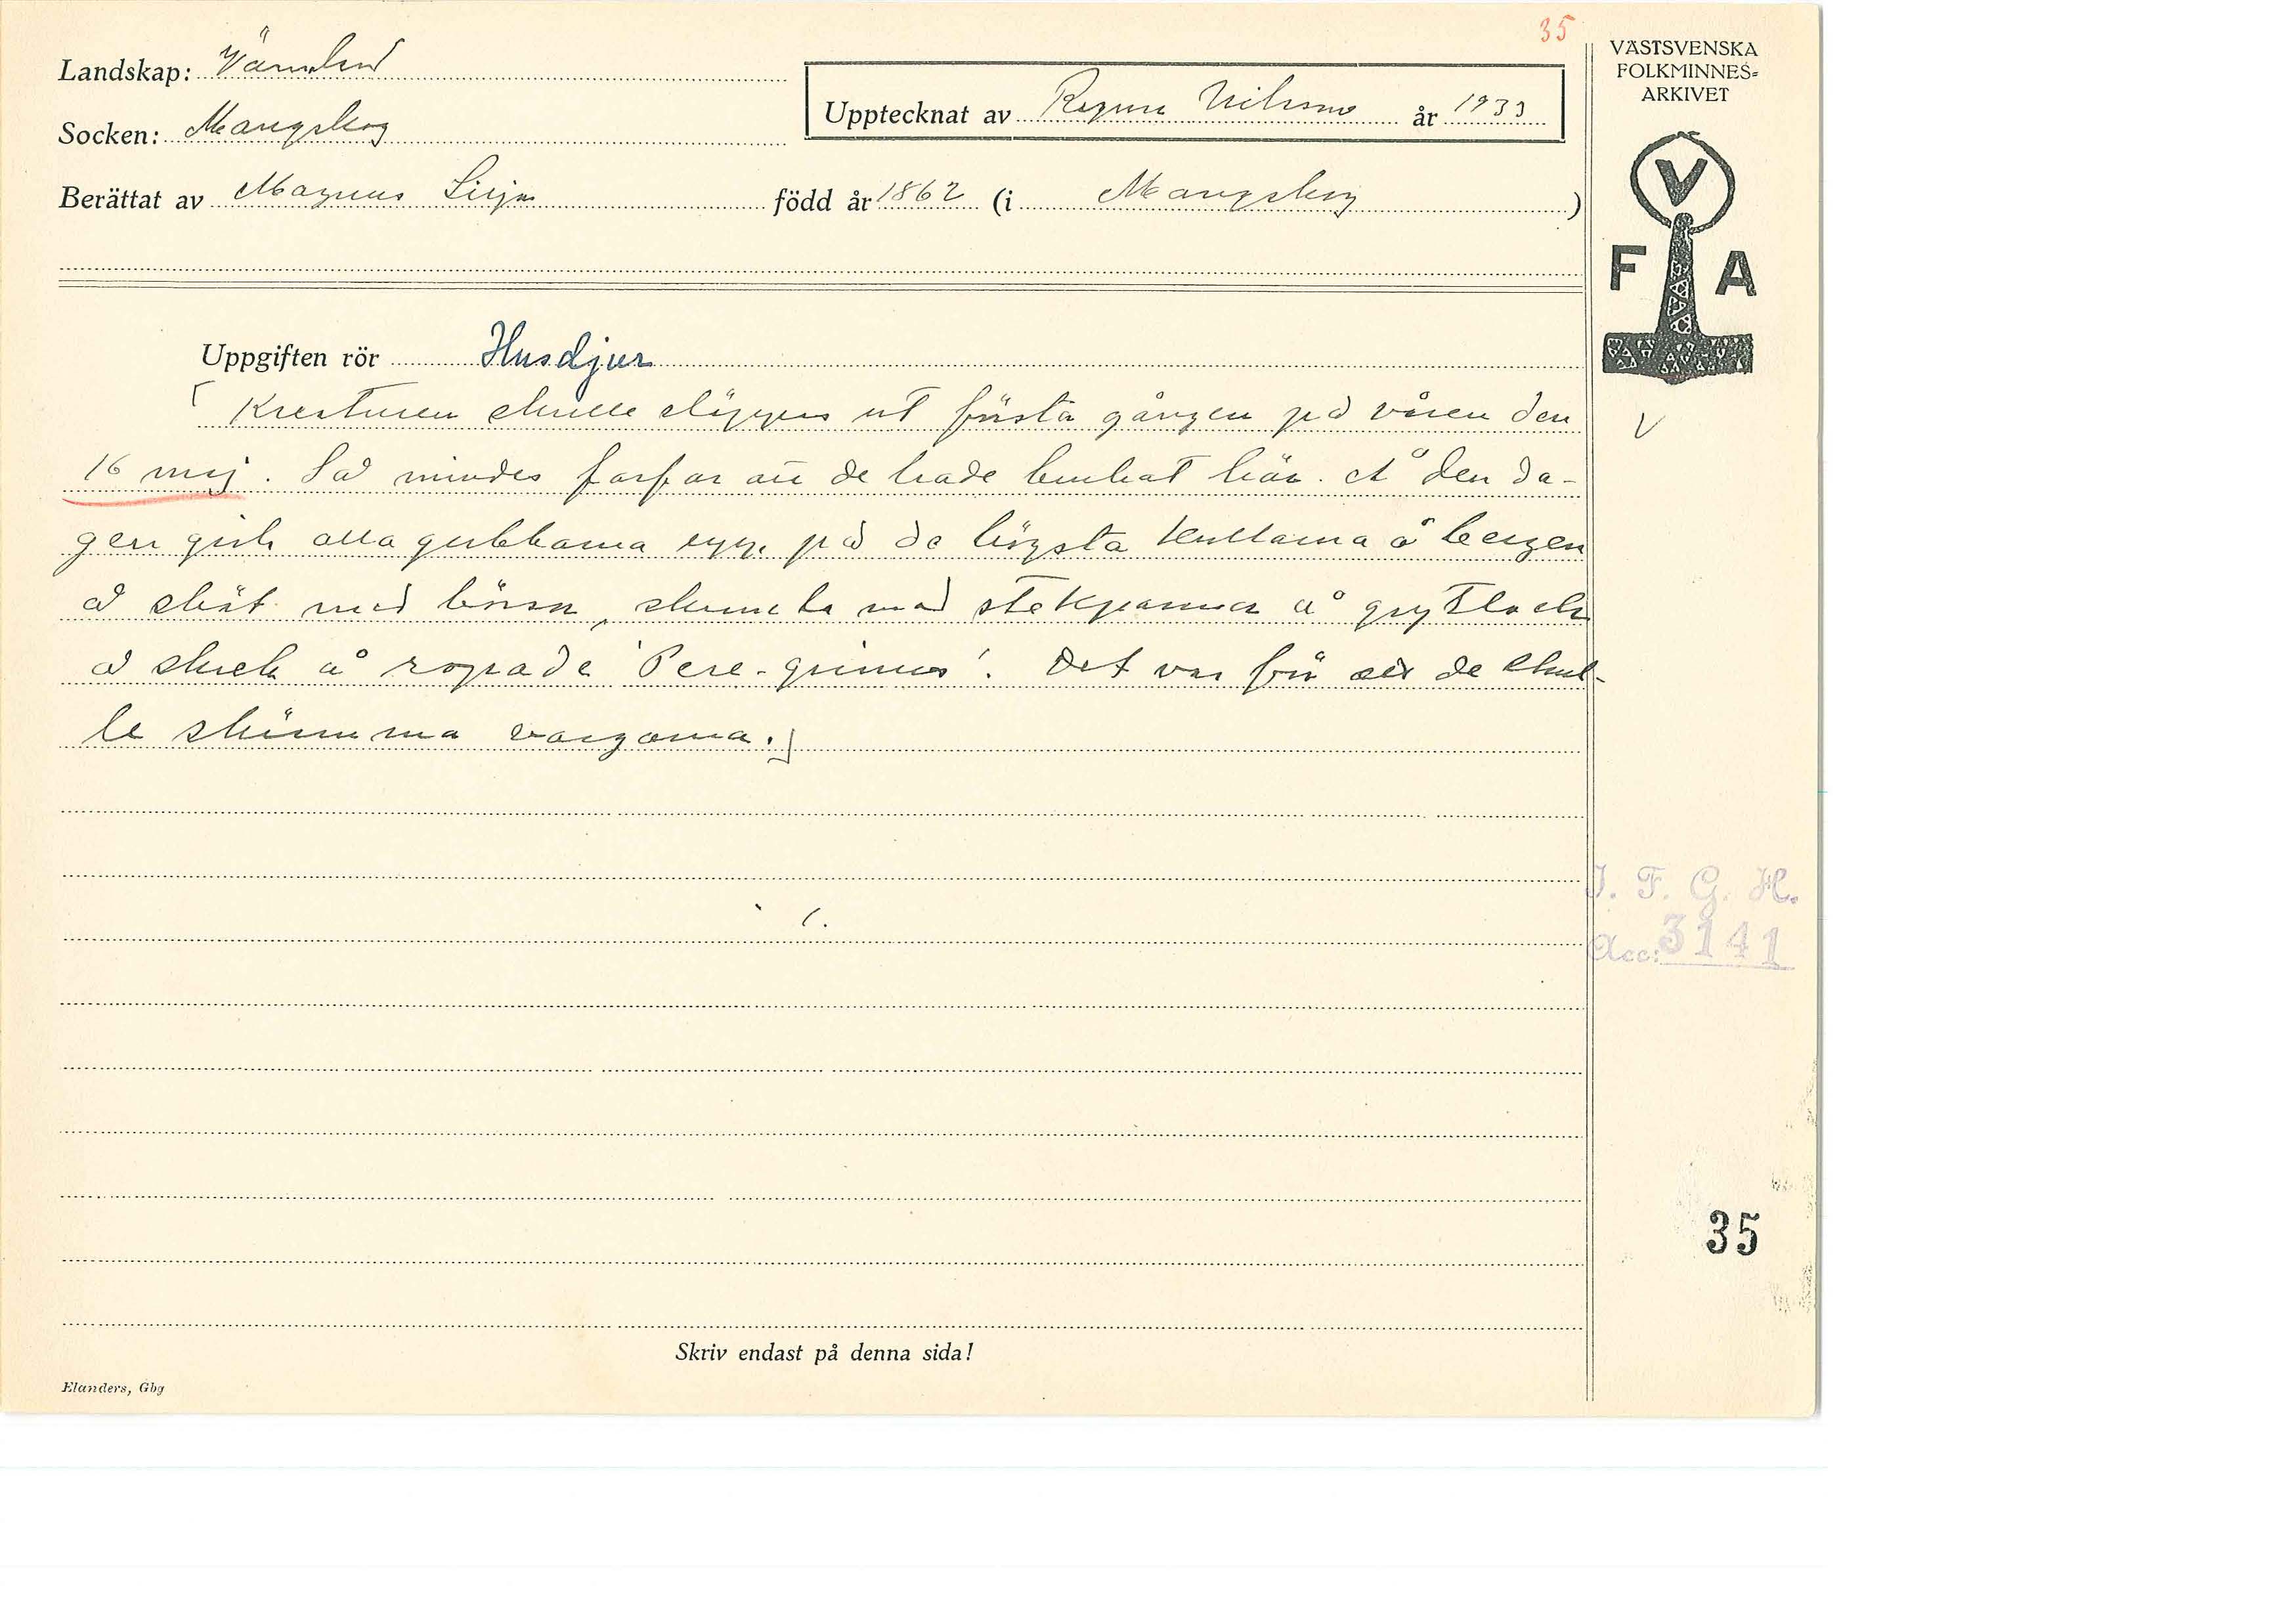 35
Landskap: Värmland
VÄSTSVENSKA
FOLKMINNES=
ARKIVET
Upptecknat av Ragnar Nilsson år 1933
Socken: Mangskog
Berättat av Magnus född år 1862 (i Mangskog)
V
F A
Uppgiften rör Husdjur
Kreaturen skulle släppas ut första gången på våren den
V
16 maj. Så mindes farfar att de hade brukat här. Å den da-
gen gick alla gubbarna upp på de högsta kullarna å bergen
å sköt med bössa, skramla med stekpannor å grytlock
å skrek å ropade 'Pere-grinus'. Det var för att de skul-
le skrämma vargarna.
I. F. G. H.
Acc: 3141
35
Skriv endast på denna sida!
Elanders, Gbg